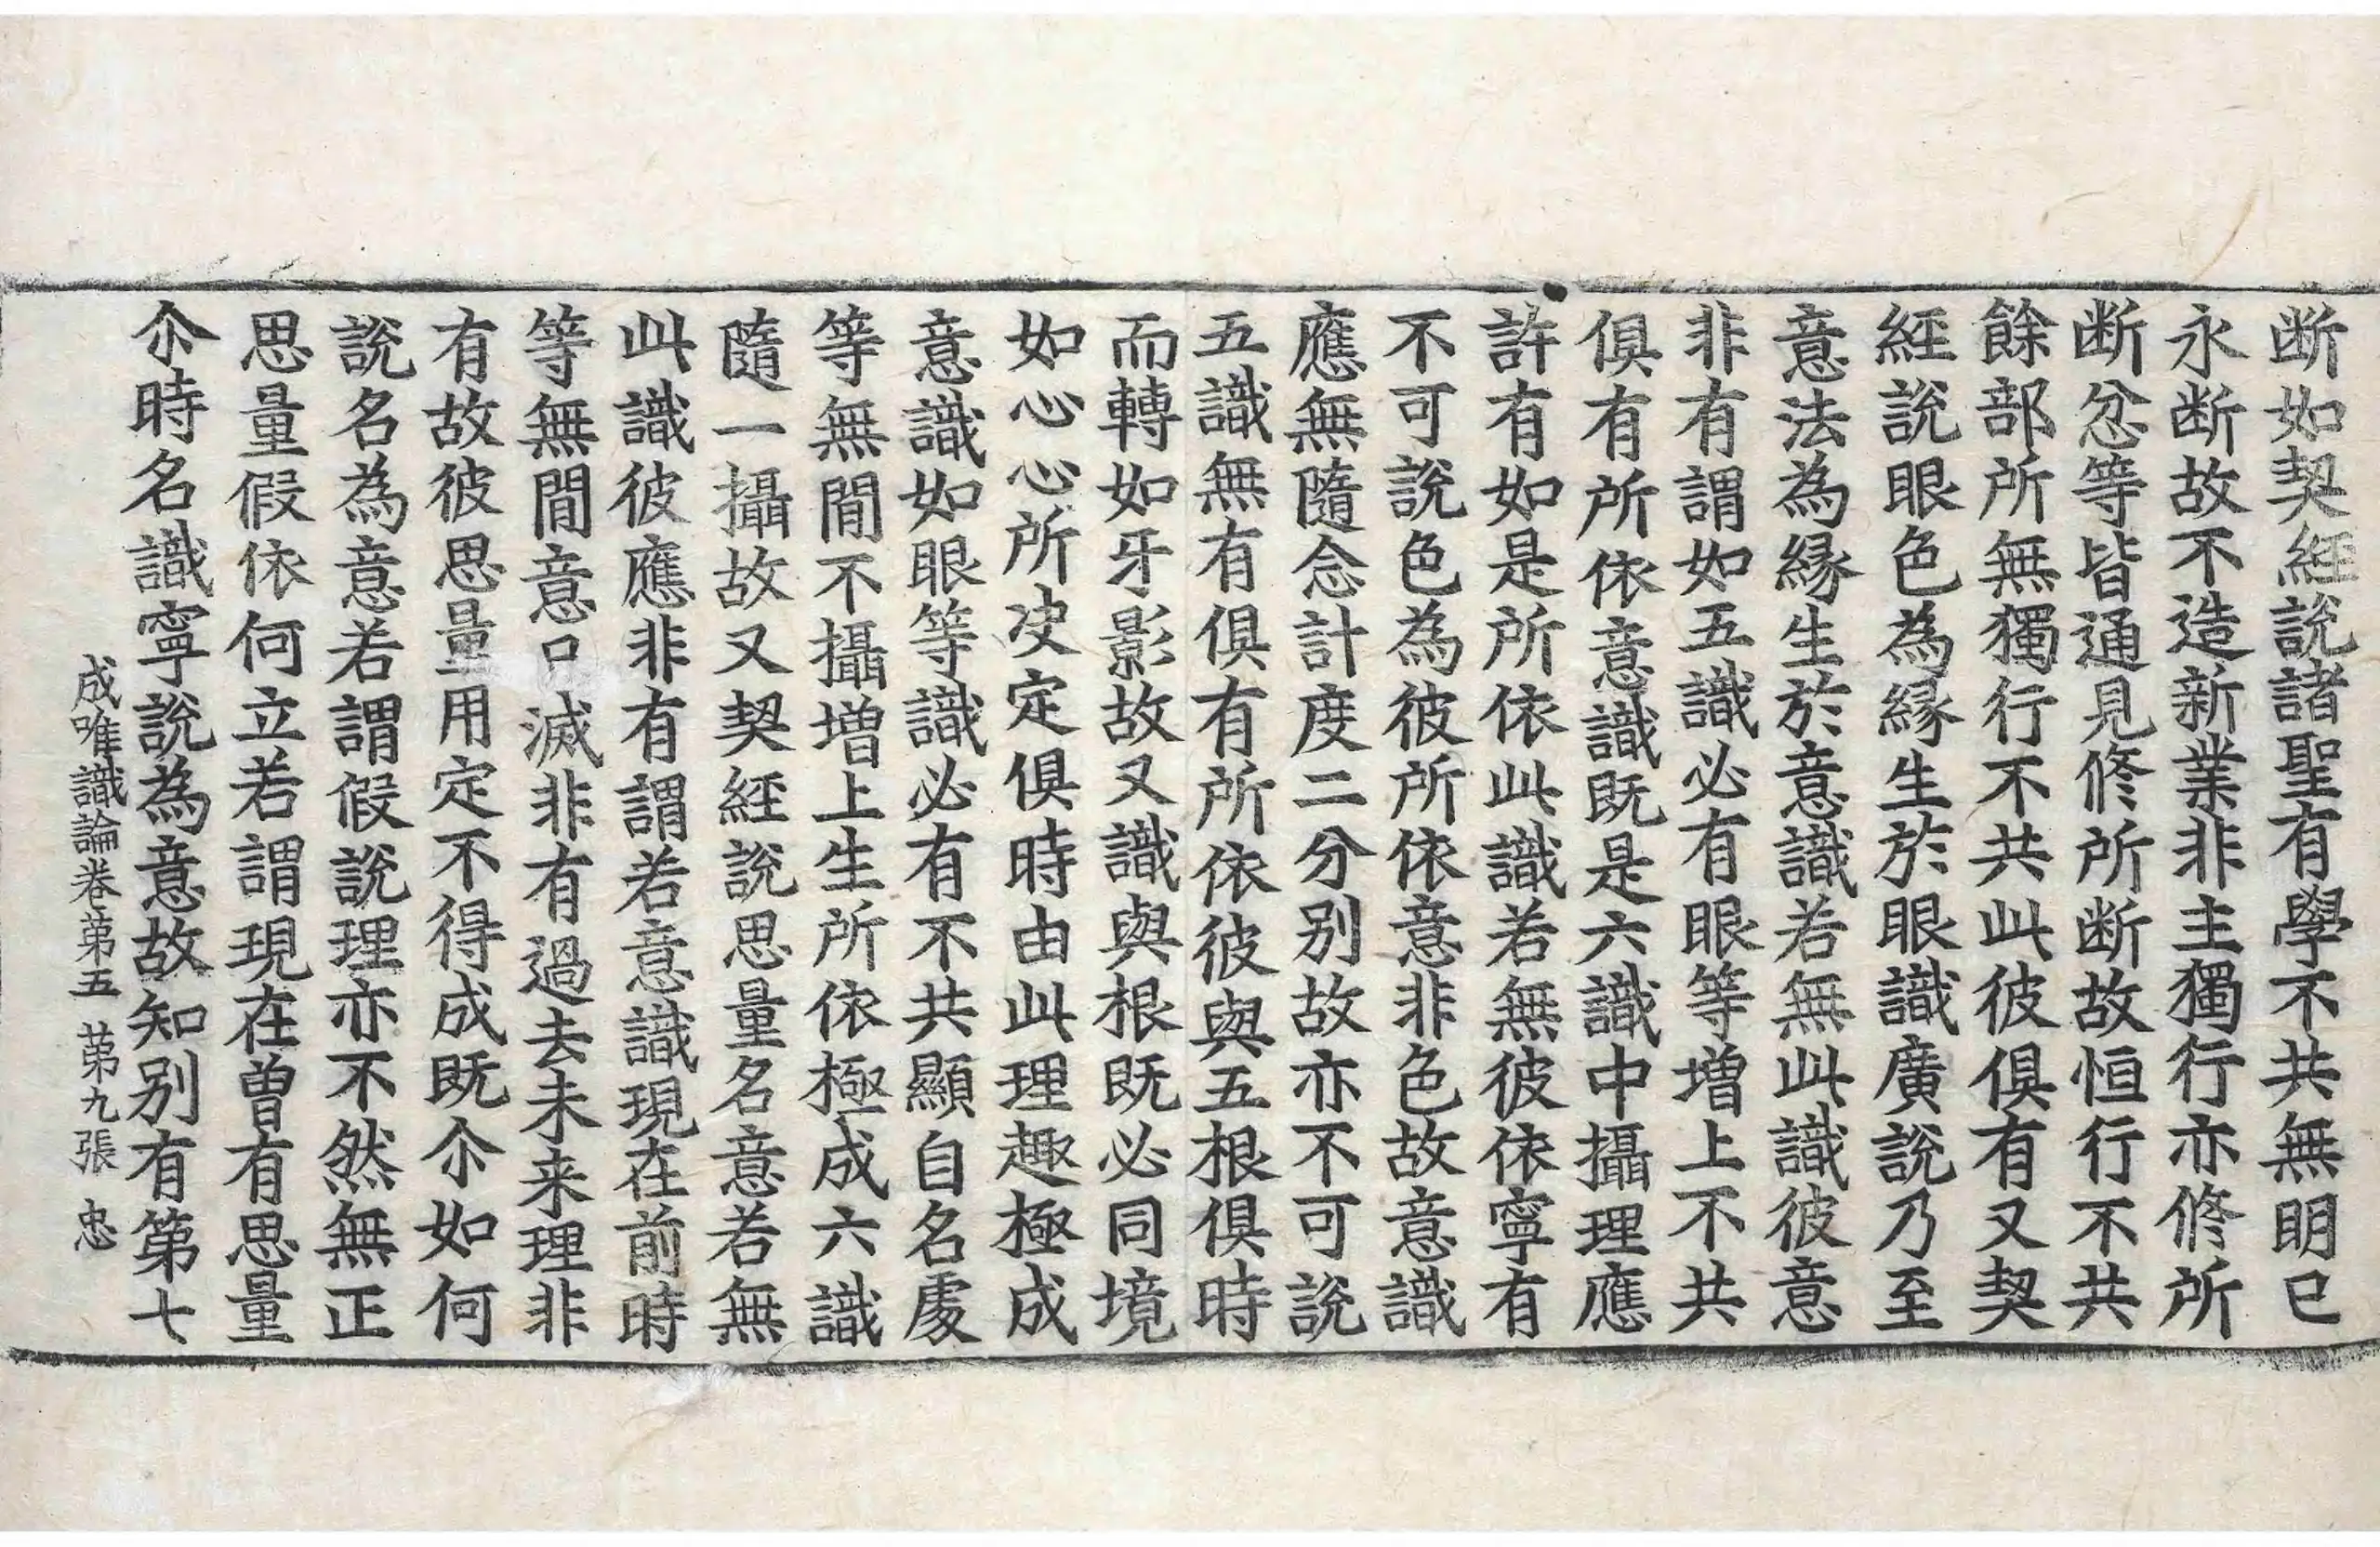 断如契経說諸聖有學不共無明已
永断故不造新業非主獨行亦修所
断忿等皆通見修所断故恒行不共
餘部所無獨行不共此彼俱有又契
経說眼色為縁生於眼識廣說乃至
意法為縁生於意識若無此識彼意
非有謂如五識必有眼等增上不共
俱有所依意識既是六識中攝理應
許有如是所依此識若無彼依寧有
不可說色為彼所依意非色故意識
應無隨念計度二分别故亦不可說
五識無有俱有所依彼與五根俱時
而轉如牙影故又識與根既必同境
如心心所决定俱時由此理趣極成
意識如眼等識必有不共顯自名處
等無間不攝增上生所依極成六識
隨一攝故又契経說思量名意若無
此識彼應非有謂若意識現在前時
等無間意滅非有過去未来理非
有故彼思量用定不得成既尒如何
說名為意若謂假說理亦不然無正
思量假依何立若謂現在曾有思量
尒時名識寧說為意故知别有第七
成唯識論卷第五 第九張 忠